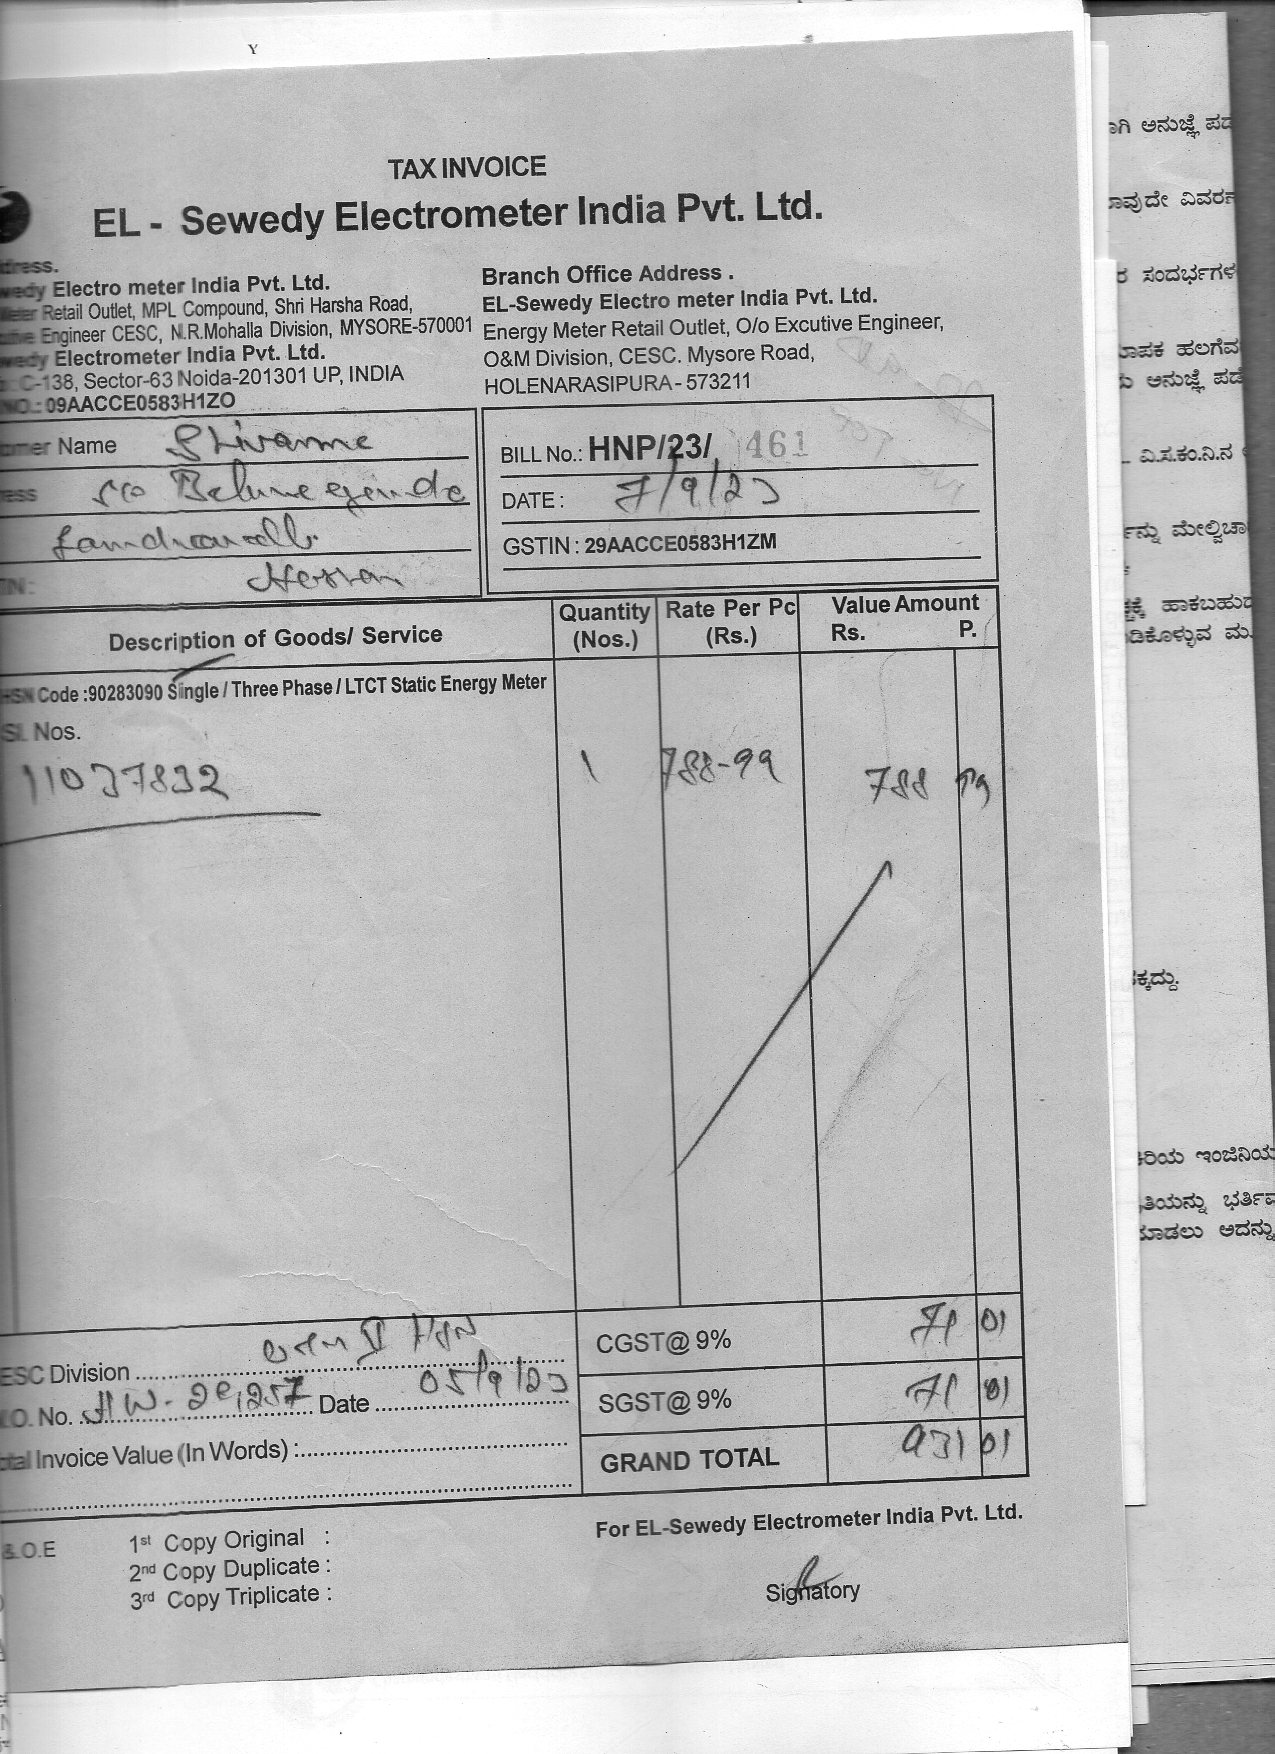 Y
TAX INVOICE
EL - Sewedy Electrometer India Pvt. Ltd.
dress.
wedy Electro meter India Pvt. Ltd.
Meter Retail Outlet, MPL Compound, Shri Harsha Road,
Engineer CESC, N.R.Mohalla Division, MYSORE-570001
wedy Electrometer India Pvt. Ltd.
C-138, Sector-63 Noida-201301 UP, INDIA
NO.: 09AACCE0583H1ZO
Branch Office Address .
EL-Sewedy Electro meter India Pvt. Ltd.
Energy Meter Retail Outlet, O/o Excutive Engineer,
O&M Division, CESC. Mysore Road,
HOLENARASIPURA - 573211
omer Name
ess
Hassan
BILL No.: HNP/23/ 461
DATE : 7/9/23
GSTIN : 29AACCE0583H1ZM
Description of Goods/ Service Quantity (Nos.) Rate Per Pc (Rs.) Value Amount Rs. P.
HSN Code :90283090 Single / Three Phase / LTCT Static Energy Meter
Sl. Nos.
11037832 1 788-99 788 99
ESC Division
.O. No. Date 05/9/23
otal Invoice Value (In Words) :
CGST@ 9% 71 01
SGST@ 9% 71 01
GRAND TOTAL 931 01
&.O.E
1st Copy Original :
2nd Copy Duplicate :
3rd Copy Triplicate :
For EL-Sewedy Electrometer India Pvt. Ltd.
Signatory
ಾಗಿ ಅನುಜ್ಞೆ ಪಡ
ಾವುದೇ ವಿವರಣ
ರ ಸಂದರ್ಭಗಳ
ಾಪಕ ಹಲಗೆವ
ು ಅನುಜ್ಞೆ ಪಡೆ
ವಿ.ಸ.ಕಂ.ನಿ.ನ
ನ್ನು ಮೇಲ್ವಿಚಾ
ಕ್ಕೆ ಹಾಕಬಹುದ
ಡಿಕೊಳ್ಳುವ ಮ
ಕ್ಕದ್ದು.
ಿರಿಯ ಇಂಜಿನಿಯ
ತಿಯನ್ನು ಭರ್ತಿಮ
ಮಾಡಲು ಅದನ್ನು